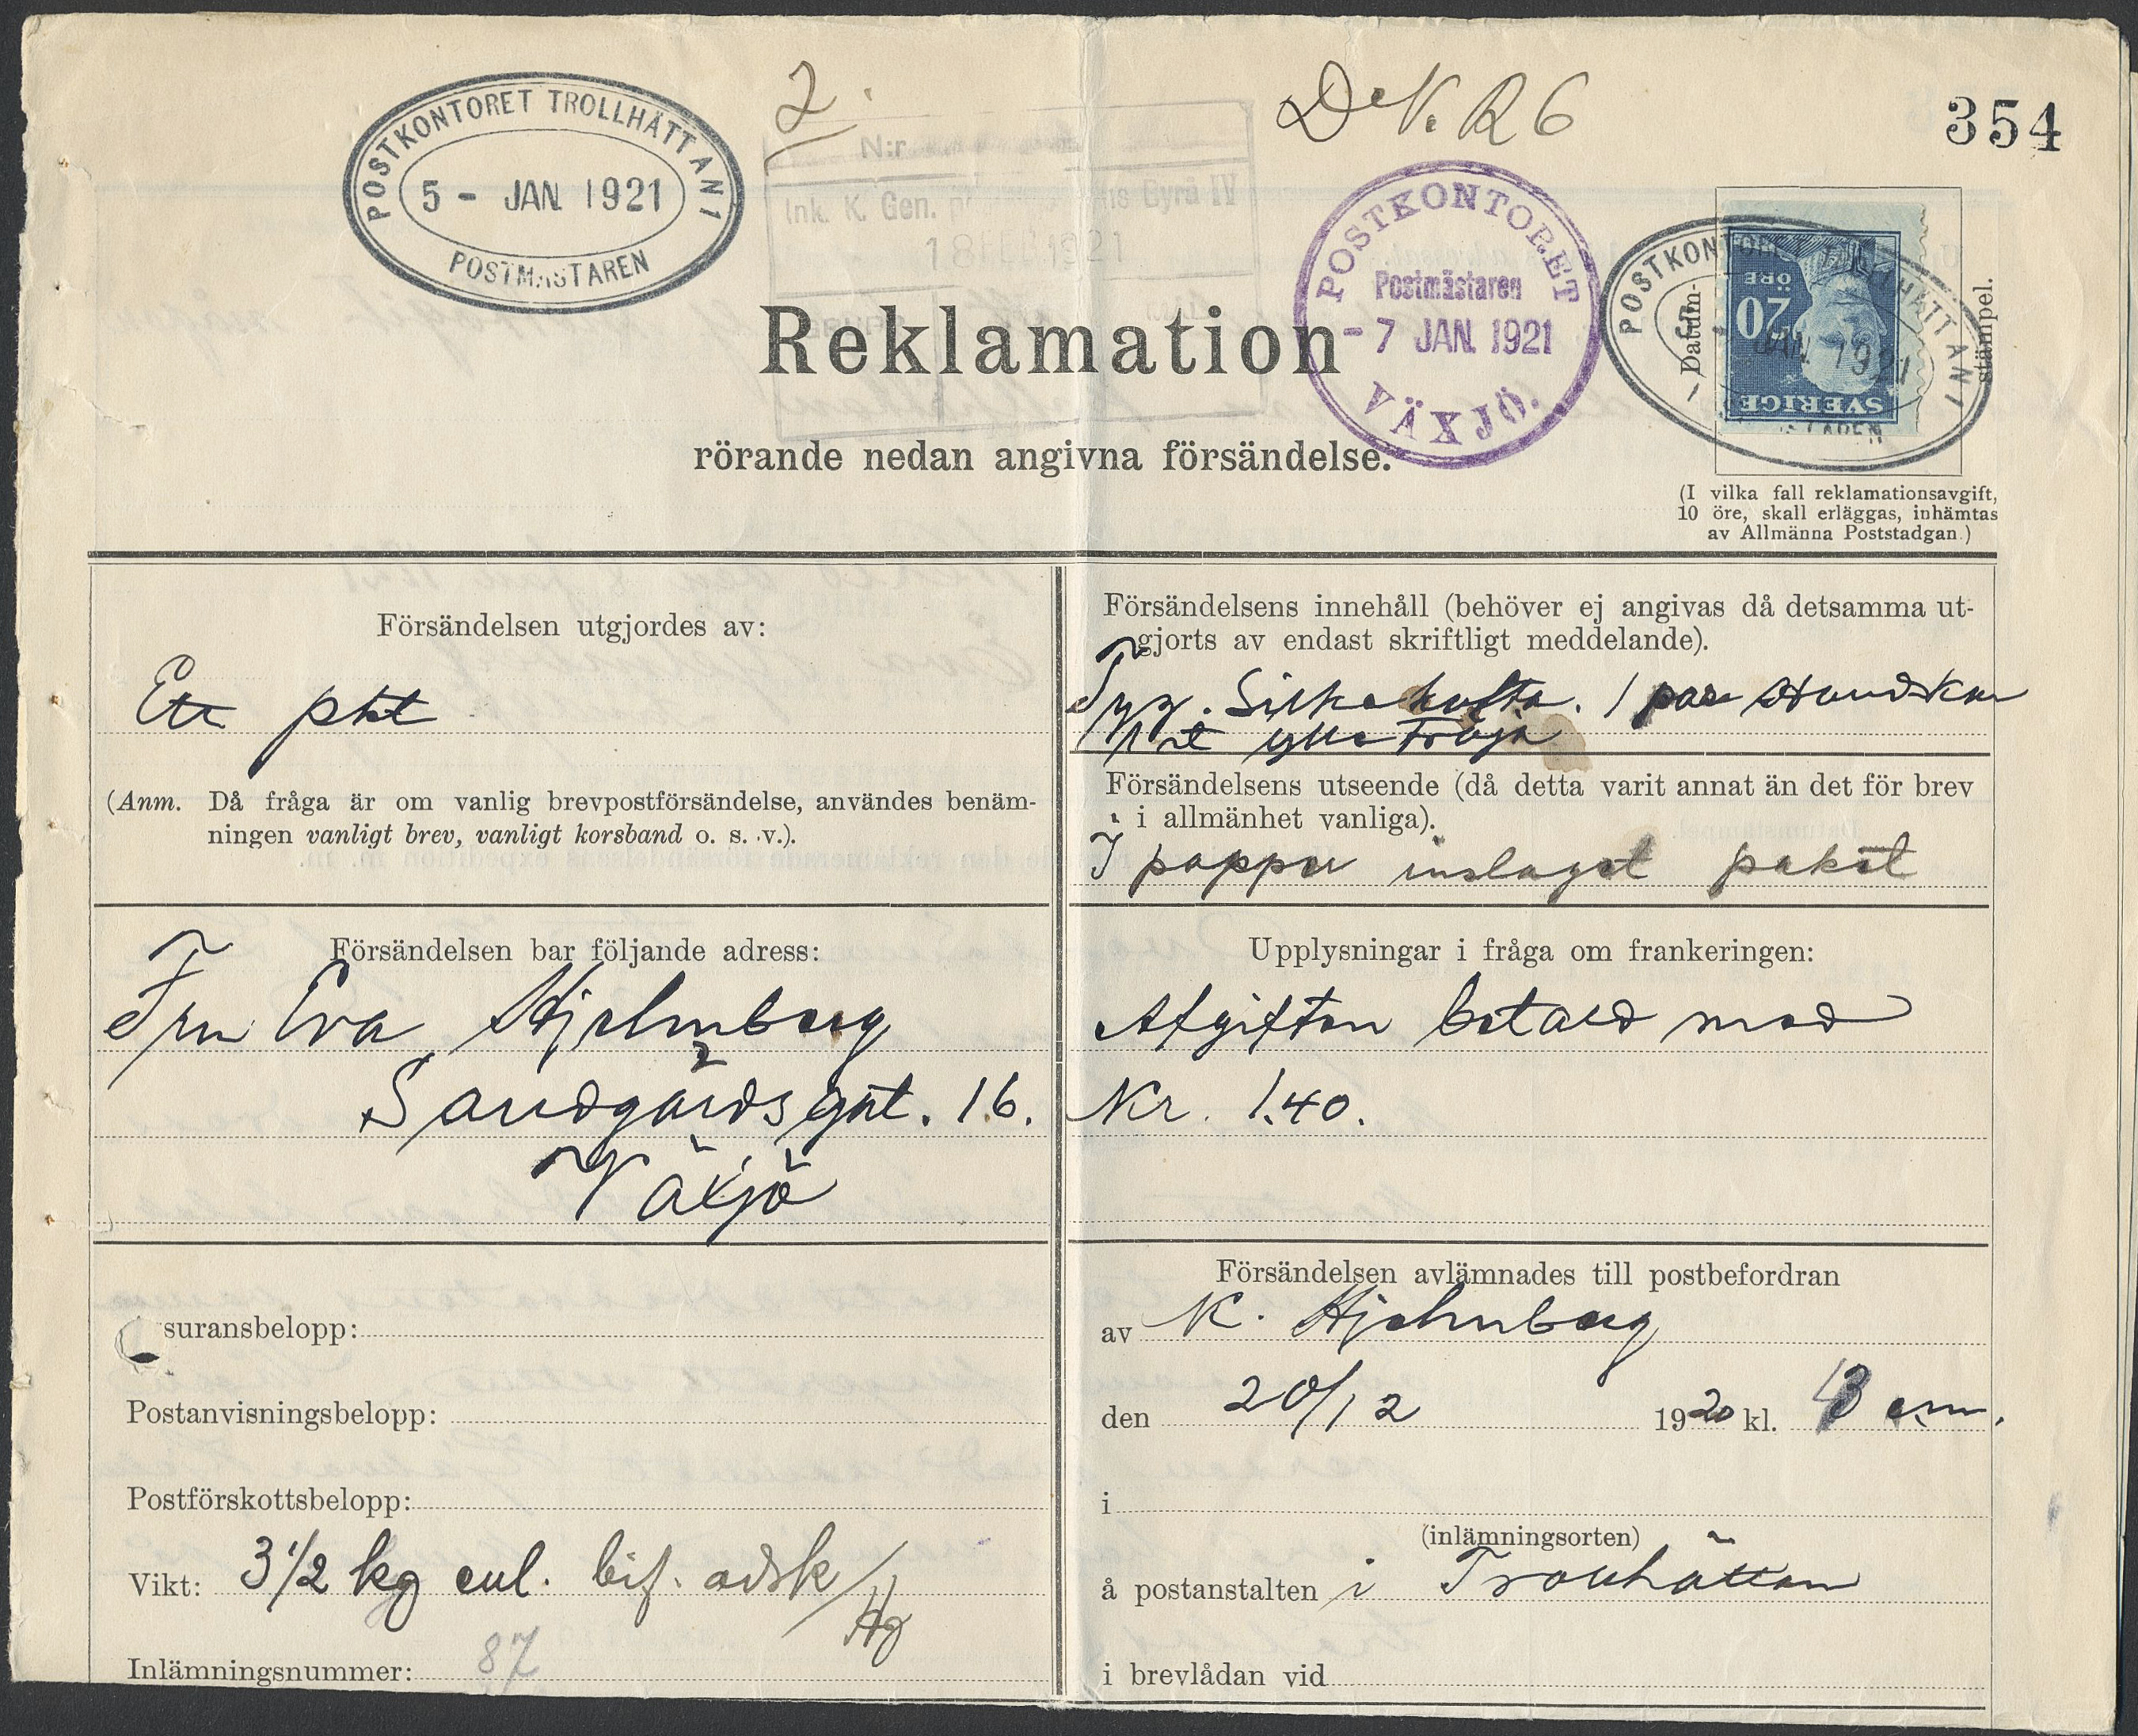 2.
D N. R 6
354
POSTKONTORET TROLLHÄTTAN 1
5 - JAN. 1921
POSTMÄSTAREN
N:r
Ink. K. Gen. Byrå IV
18 FEB 1921
POSTKONTORET
Postmästaren
- 7 JAN. 1921
VÄXJÖ.
POSTKONTORET TROLLHÄTTAN 1
JAN. 1921
Datum-
stämpel.
SVERIGE
20
ÖRE
Reklamation
rörande nedan angivna försändelse.
(I vilka fall reklamationsavgift,
10 öre, skall erläggas, inhämtas
av Allmänna Poststadgan.)
Försändelsen utgjordes av:
Ett pkt
(Anm. Då fråga är om vanlig brevpostförsändelse, användes benäm-
ningen vanligt brev, vanligt korsband o. s. v.).
Försändelsens innehåll (behöver ej angivas då detsamma ut-
gjorts av endast skriftligt meddelande).
Tyg. Silkekofta. 1 par Handskar
1 st ylle Tröja
Försändelsens utseende (då detta varit annat än det för brev
i allmänhet vanliga).
I papper inslaget paket
Försändelsen bar följande adress:
Fru Eva Hjelmberg
Sandgärdsgat. 16.
Växjö
Upplysningar i fråga om frankeringen:
Afgiften betald med
Kr. 1.40.
suransbelopp:
Postanvisningsbelopp:
Postförskottsbelopp:
Vikt: 3 1/2 kg enl. bif. adrk/
Hg
Inlämningsnummer: 87
Försändelsen avlämnades till postbefordran
av K. Hjelmberg
den 20/12 1920 kl. 3 em.
i
(inlämningsorten)
å postanstalten i Trollhättan
i brevlådan vid